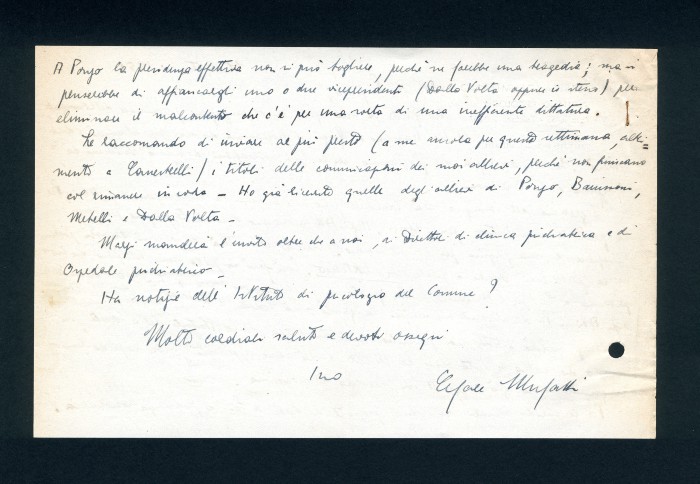 A Ponzo la presidenza effettiva non si può togliere, perché ne farebbe una tragedia; ma si
penserebbe di affiancargli uno o due vicepresidenti (Dalla Volta oppure io stesso) per
eliminare il malcontento che c'è per una sorta di una inefficiente dittatura.
Le raccomando di inviare al più presto (a me ancora per questa settimana, altri=
menti a Canestrelli) i titoli delle comunicazioni dei suoi allievi, perché non finiscano
col rimanere in coda – Ho già ricevuto quelle degli allievi di Ponzo, Banissoni,
Metelli e Dalla Volta –
manderà l'invito oltre che a noi, ai Direttori di clinica psichiatrica e di
Ospedale psichiatrico –
Ha notizie dell'Istituto di psicologia del Comune?
Molto cordiali saluti e devoti ossequi
Suo
Cesare Musatti